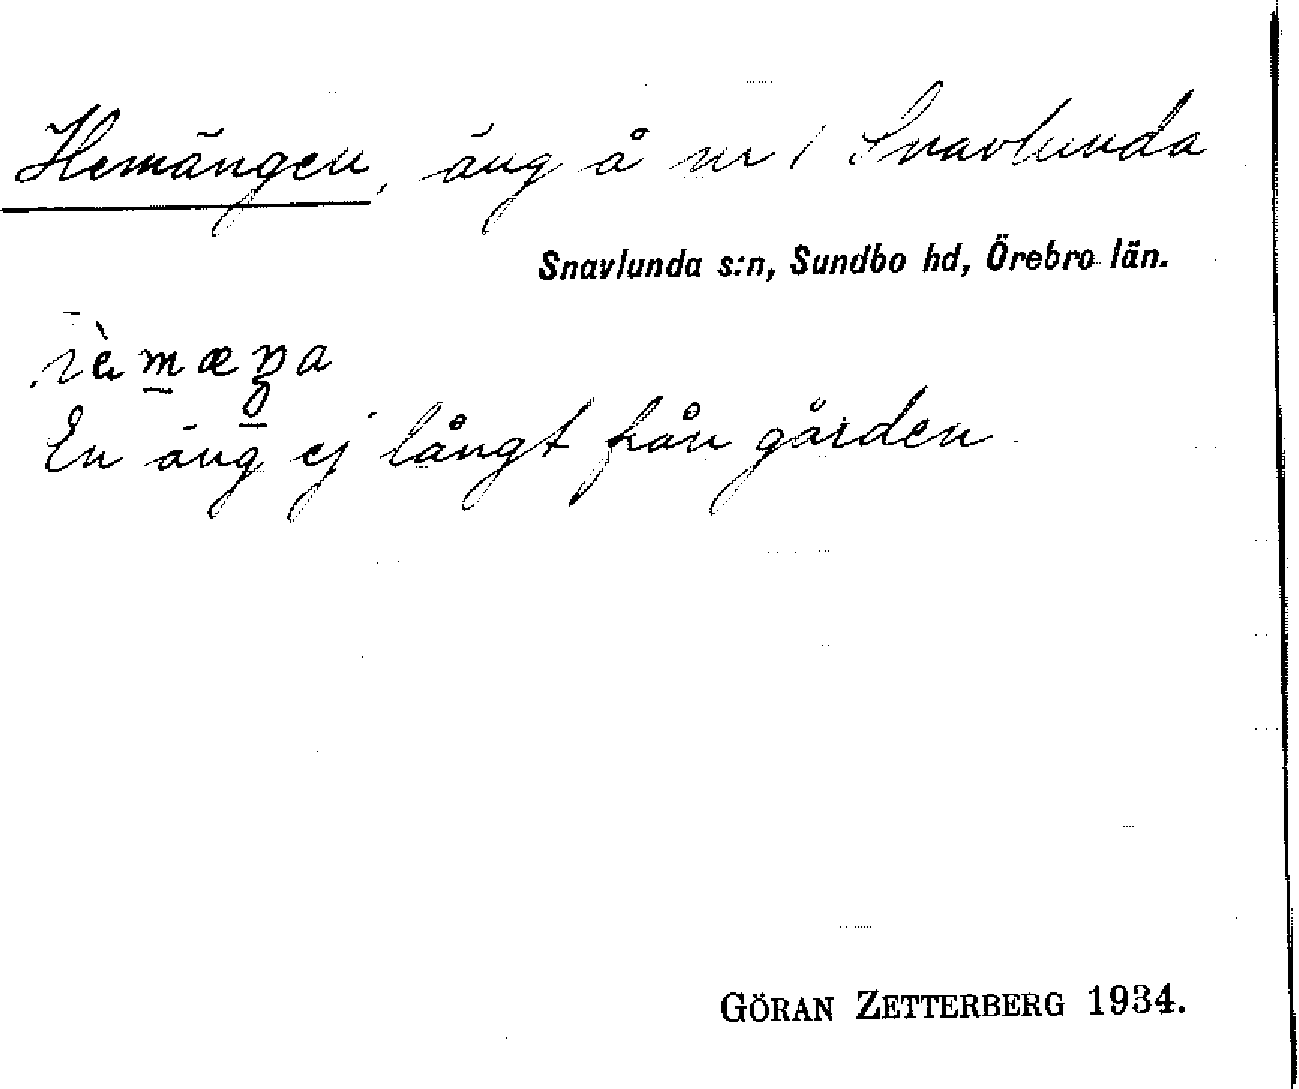 Hemängen, äng å nr 1 Snavlunda
Snavlunda s:n, Sundbo hd, Örebro län.
En äng ej långt från gården
GÖRAN ZETTERBERG 1934.